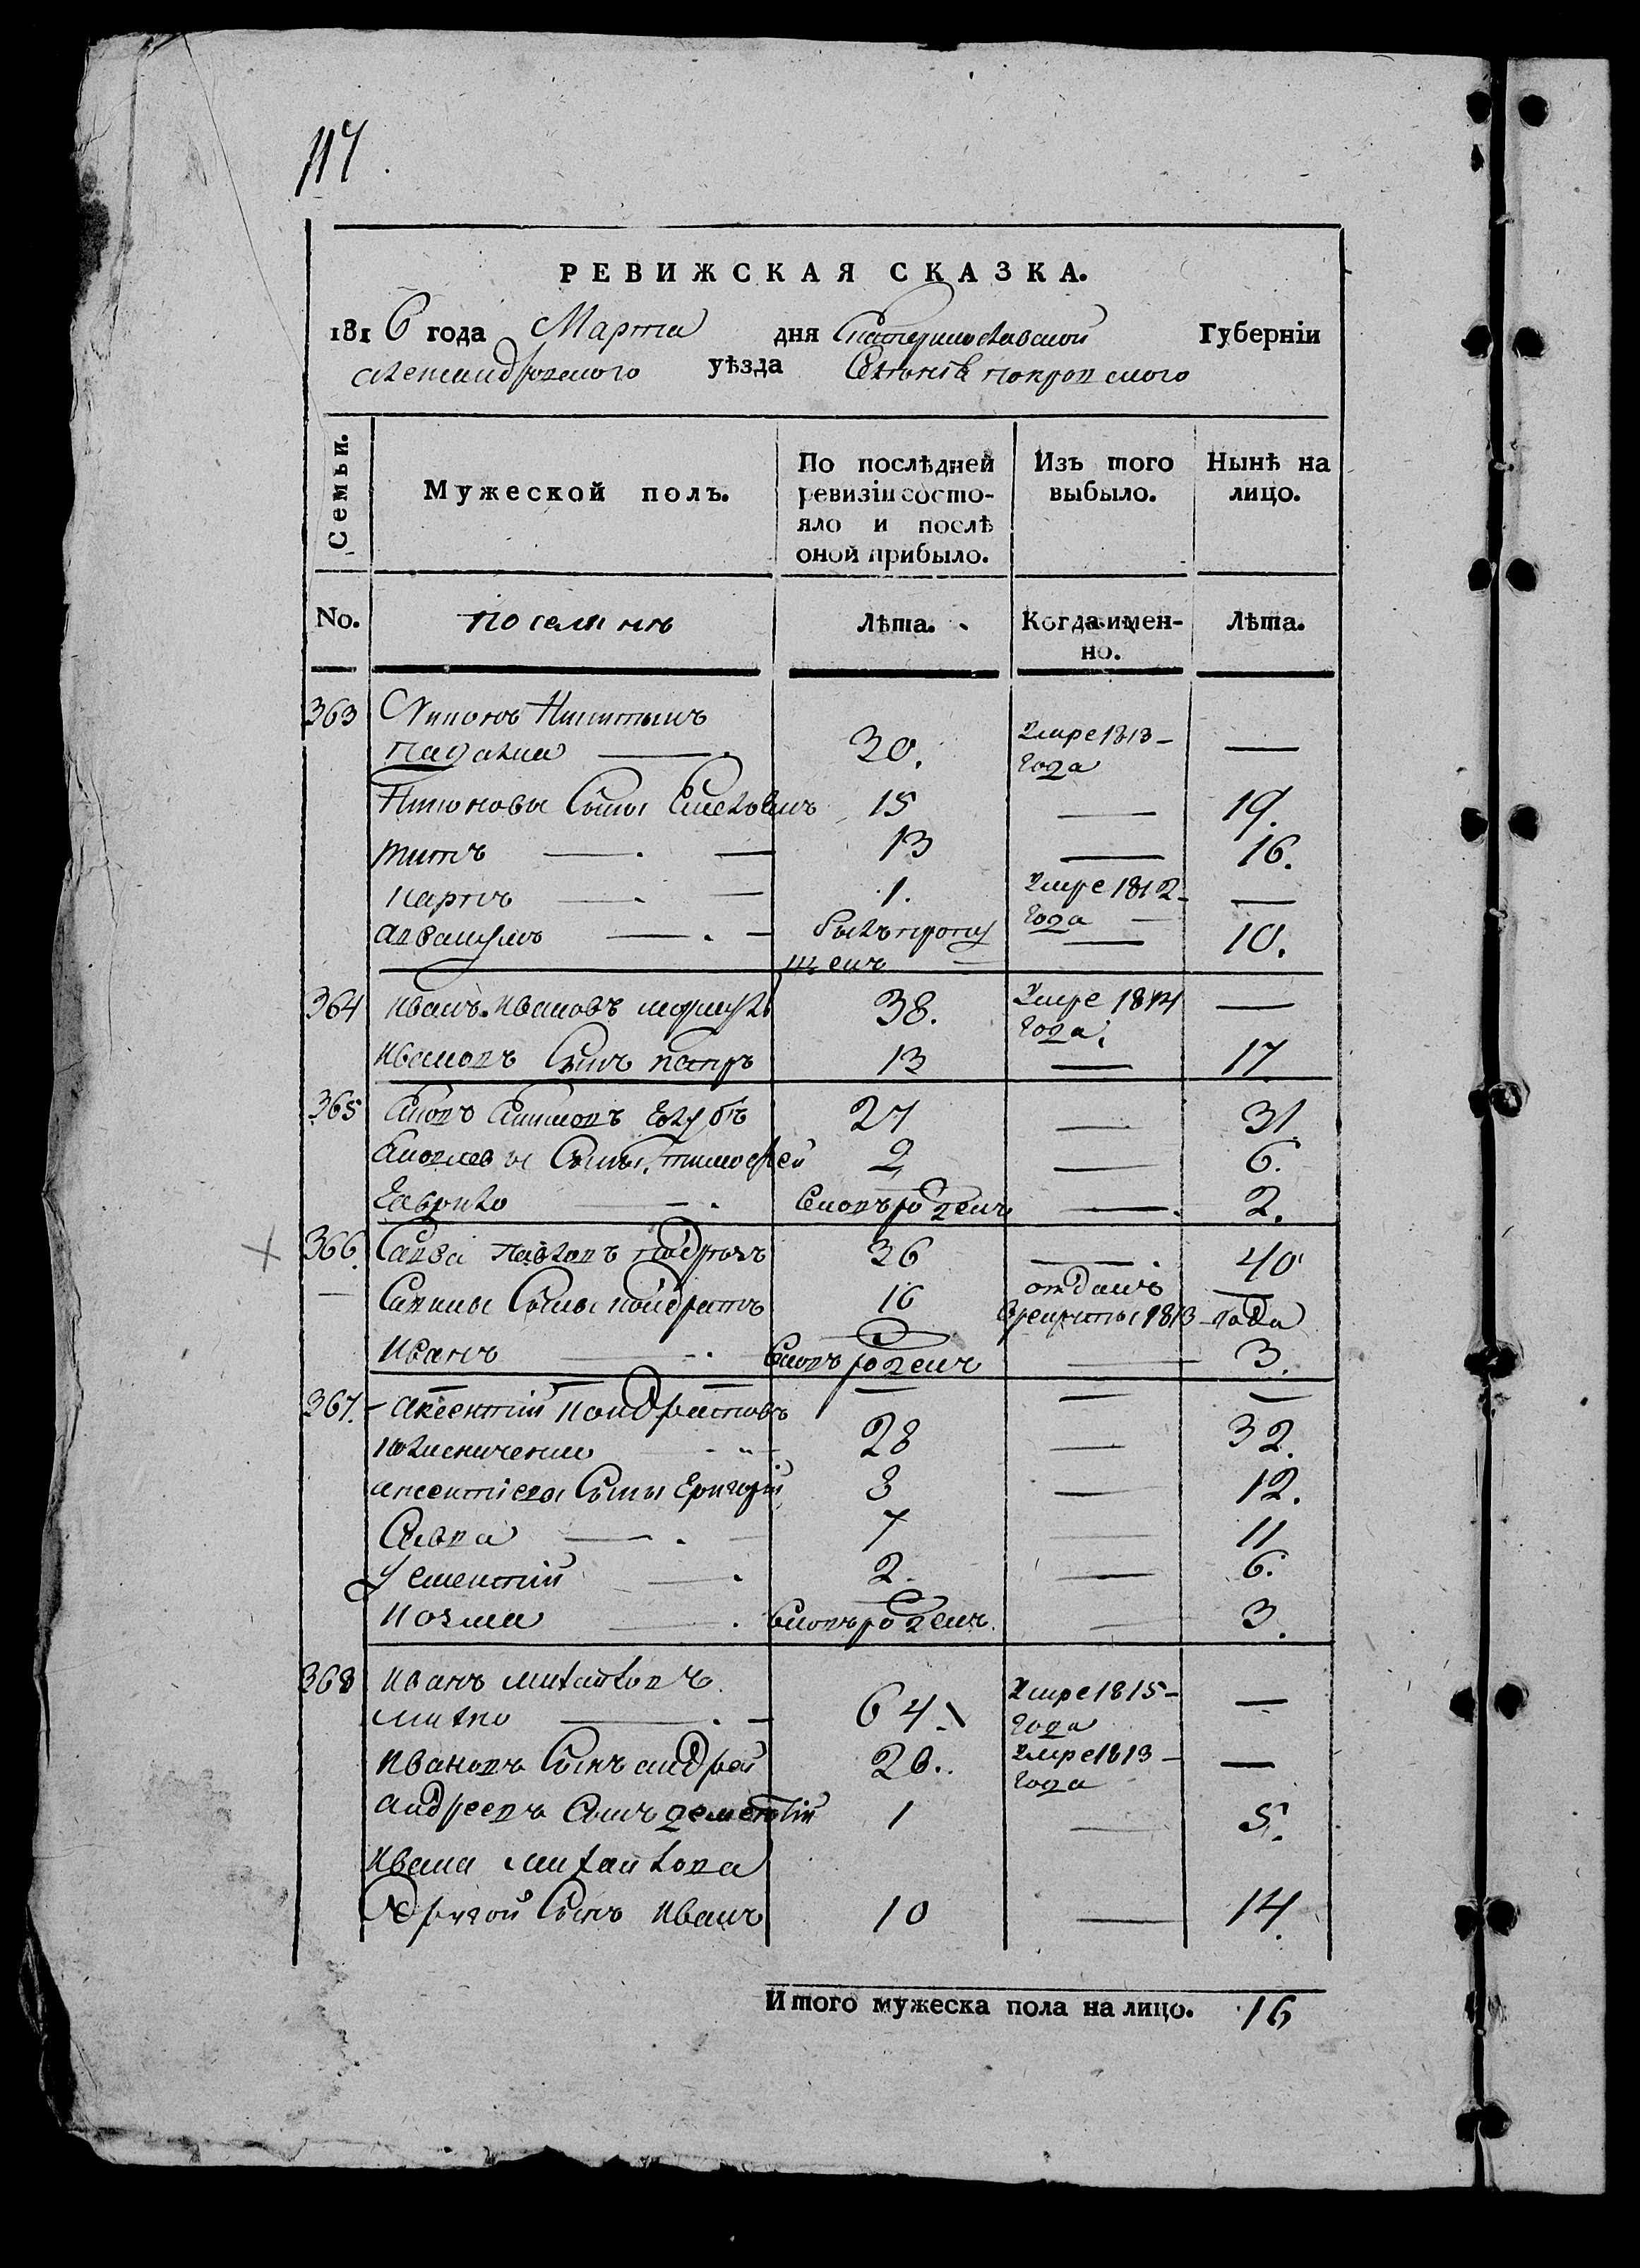 117
РЕВИЖСКАЯ СКАЗКА.
1816 года Марта дня Екатеринославской Губерніи
Александровского уѣзда Селенія покровского
Семьи.
Мужеской полъ.
По послѣдней ревизіи состо-
яло и послѣ
оной прибыло.
Изъ того
выбыло.
Нынѣ на
лицо.
No. поселянъ Лѣта. Когда имен-
но. Лѣта.
363 Никонъ Никитинъ
30. Умре 1813 – года —
Никоновы Сыны 15 — 19.
титъ — 13 — 16.
карпъ — 1. Умре 1812 – года —
авакумъ — былъ пропу
щенъ — 10.
364 иванъ Ивановъ 38. Умре 1814 года. —
Ивановъ Сынъ петръ 13 — 17
365 27 — 31
Сыны тимофей 2 — 6.
Гаврило — вновь рожденъ — 2.
366. Савва павловъ 36 — 40
Саввины Сыны кондратъ 16 отданъ
в рекруты 1813 года
Иванъ — вновь рожденъ — 3.
367. авксентій кондратовъ
28 — 32.
авксентіевы Сыны Григорій 8 — 12.
Савва — 7 — 11
2. — 6.
козма — вновь рожденъ — 3.
368 Иванъ михайловъ
64. Умре 1815 – года —
Ивановъ Сынъ андрей 26. Умре 1813 – года —
андреевъ Сынъ дементій 1 — 5.
Ивана михайлова
другой Сынъ Иванъ 10 — 14.
Итого мужеска пола на лицо. 16